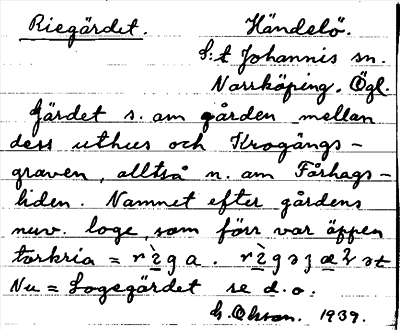 Riegärdet. Händelö.
S:t Johannis sn.
Norrköping. Ögl.
Gärdet s. om gården mellan
dess uthus och Krogängs-
graven, alltså n. om Fårhags-
liden. Namnet efter gårdens
nuv. loge, som förr var öppen
torkria =
Nu = Logegärdet se d.o.
G. Olson. 1939.